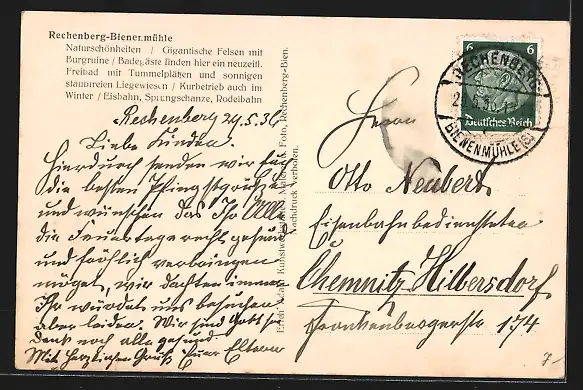 Rechenberg-Bienenmühle
Naturschönheiten / Gigantische Felsen mit
Burgruine / Badegäste finden hier ein neuzeitl.
Freibad mit Tummelplätzen und sonnigen
staubfreien Liegewiesen / Kurbetrieb auch im
Winter / Eisbahn, Sprungschanze, Rodelbahn
Rechenberg 29.5.36
Liebe Kinder.
Hierdurch senden wir Euch
die besten Pfingstgrüße
und wünschen das Ihr Alle
die Feuertage recht gesund
und fröhlich verbringen
möget, wir dachten immer
Ihr würdet uns besuchen
aber leider. Wir sind Gott sei
Dank noch alle gesund
Mit herzlichen Gruß Euer Eltern
Foto, Rechenberg-Bien.
Nachdruck verboten.
6 6
Deutsches Reich
RECHENBERG
BIENENMÜHLE
Herrn
Otto Neubert
Eisenbahnbediensteten
Chemnitz Hilbersdorf
Frankenbergerstr 174
7-